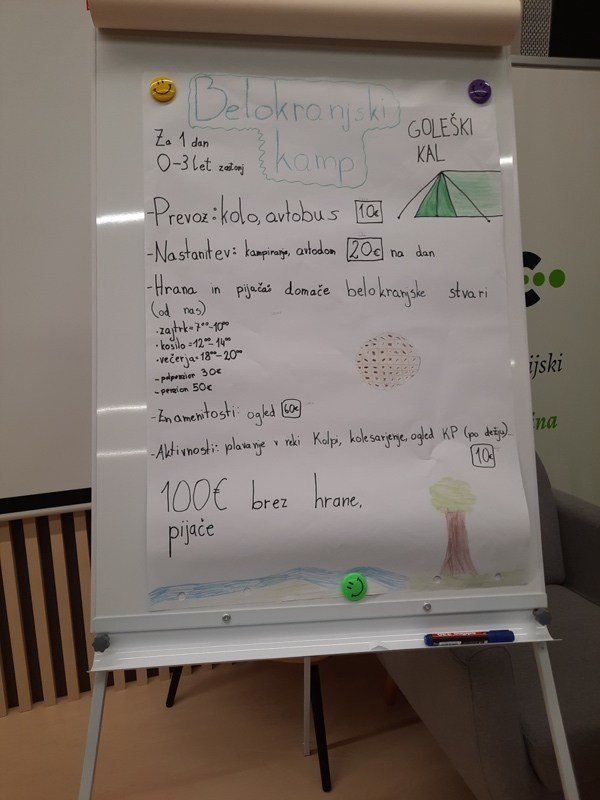 Belokranjski
kamp
Za 1 dan
0-3 let zastonj
GOLEŠKI
KAL
- Prevoz: kolo, avtobus 10€
- Nastanitev: kampiranje, avtodom 20€ na dan
- Hrana in pijača: domače belokranjske stvari
(od nas)
• zajtrk = 7⁰⁰-10⁰⁰
• kosilo = 12⁰⁰-14⁰⁰
• večerja = 18⁰⁰-20⁰⁰
- polpenzion 30€
- penzion 50€
- Znamenitosti: ogled 60€
- Aktivnosti: plavanje v reki Kolpi, kolesarjenje, ogled KP (po dežju)...
10€
100€ brez hrane,
pijače
ijski
ina